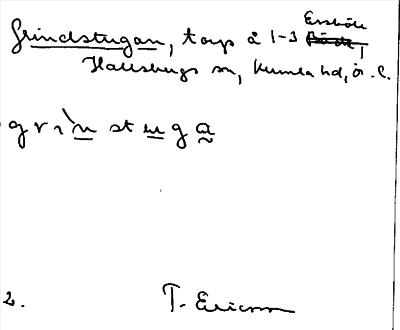 Grindstugan, torp å 1-3 Ersböle
Hallsbergs sn, Kumla hd, ör. l.
grìn stuga
2. T. Ericsson